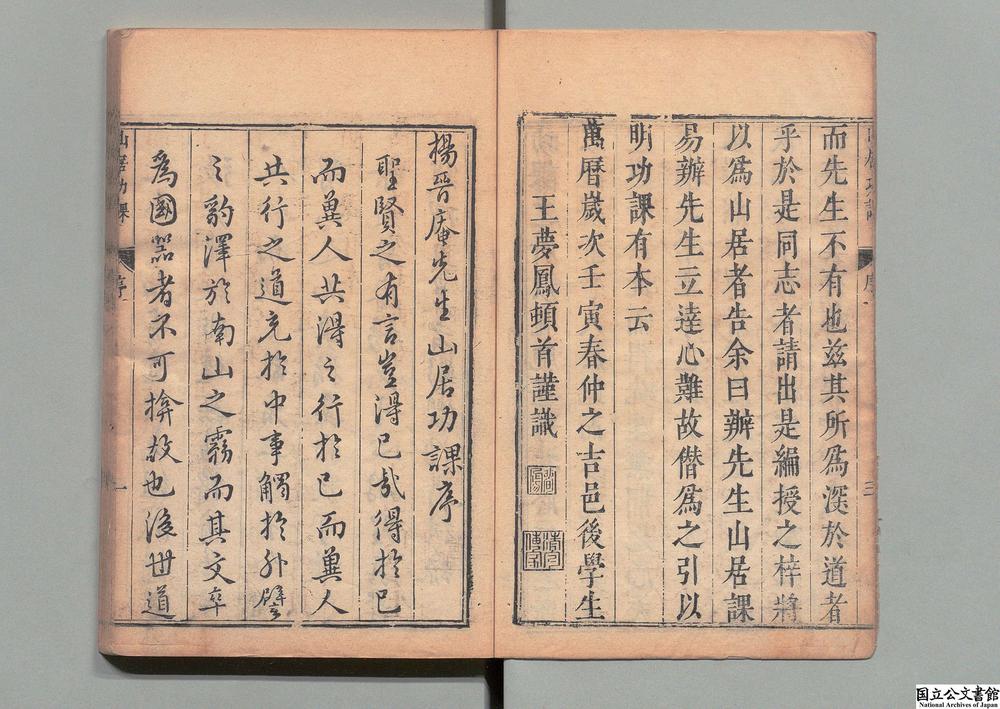 而先生不有也兹其所為深於道者
乎於是同志者請出是編授之梓將
以為山居者告余曰辦先生山居課
易辦先生立達心難故僭為之引以
明功課有本云
萬曆歲次壬寅春仲之吉邑後學生
王夢鳳頓首謹識
楊晉庵先生山居功課序
聖賢之有言豈得已哉得於己
而冀人共得之行於己而冀人
共行之道充於中事觸於外譬
之豹澤於南山之霧而其文卒
為國器者不可揜故也後世道
山居功課
序
一
序
三
国立公文書館
National Archives of Japan